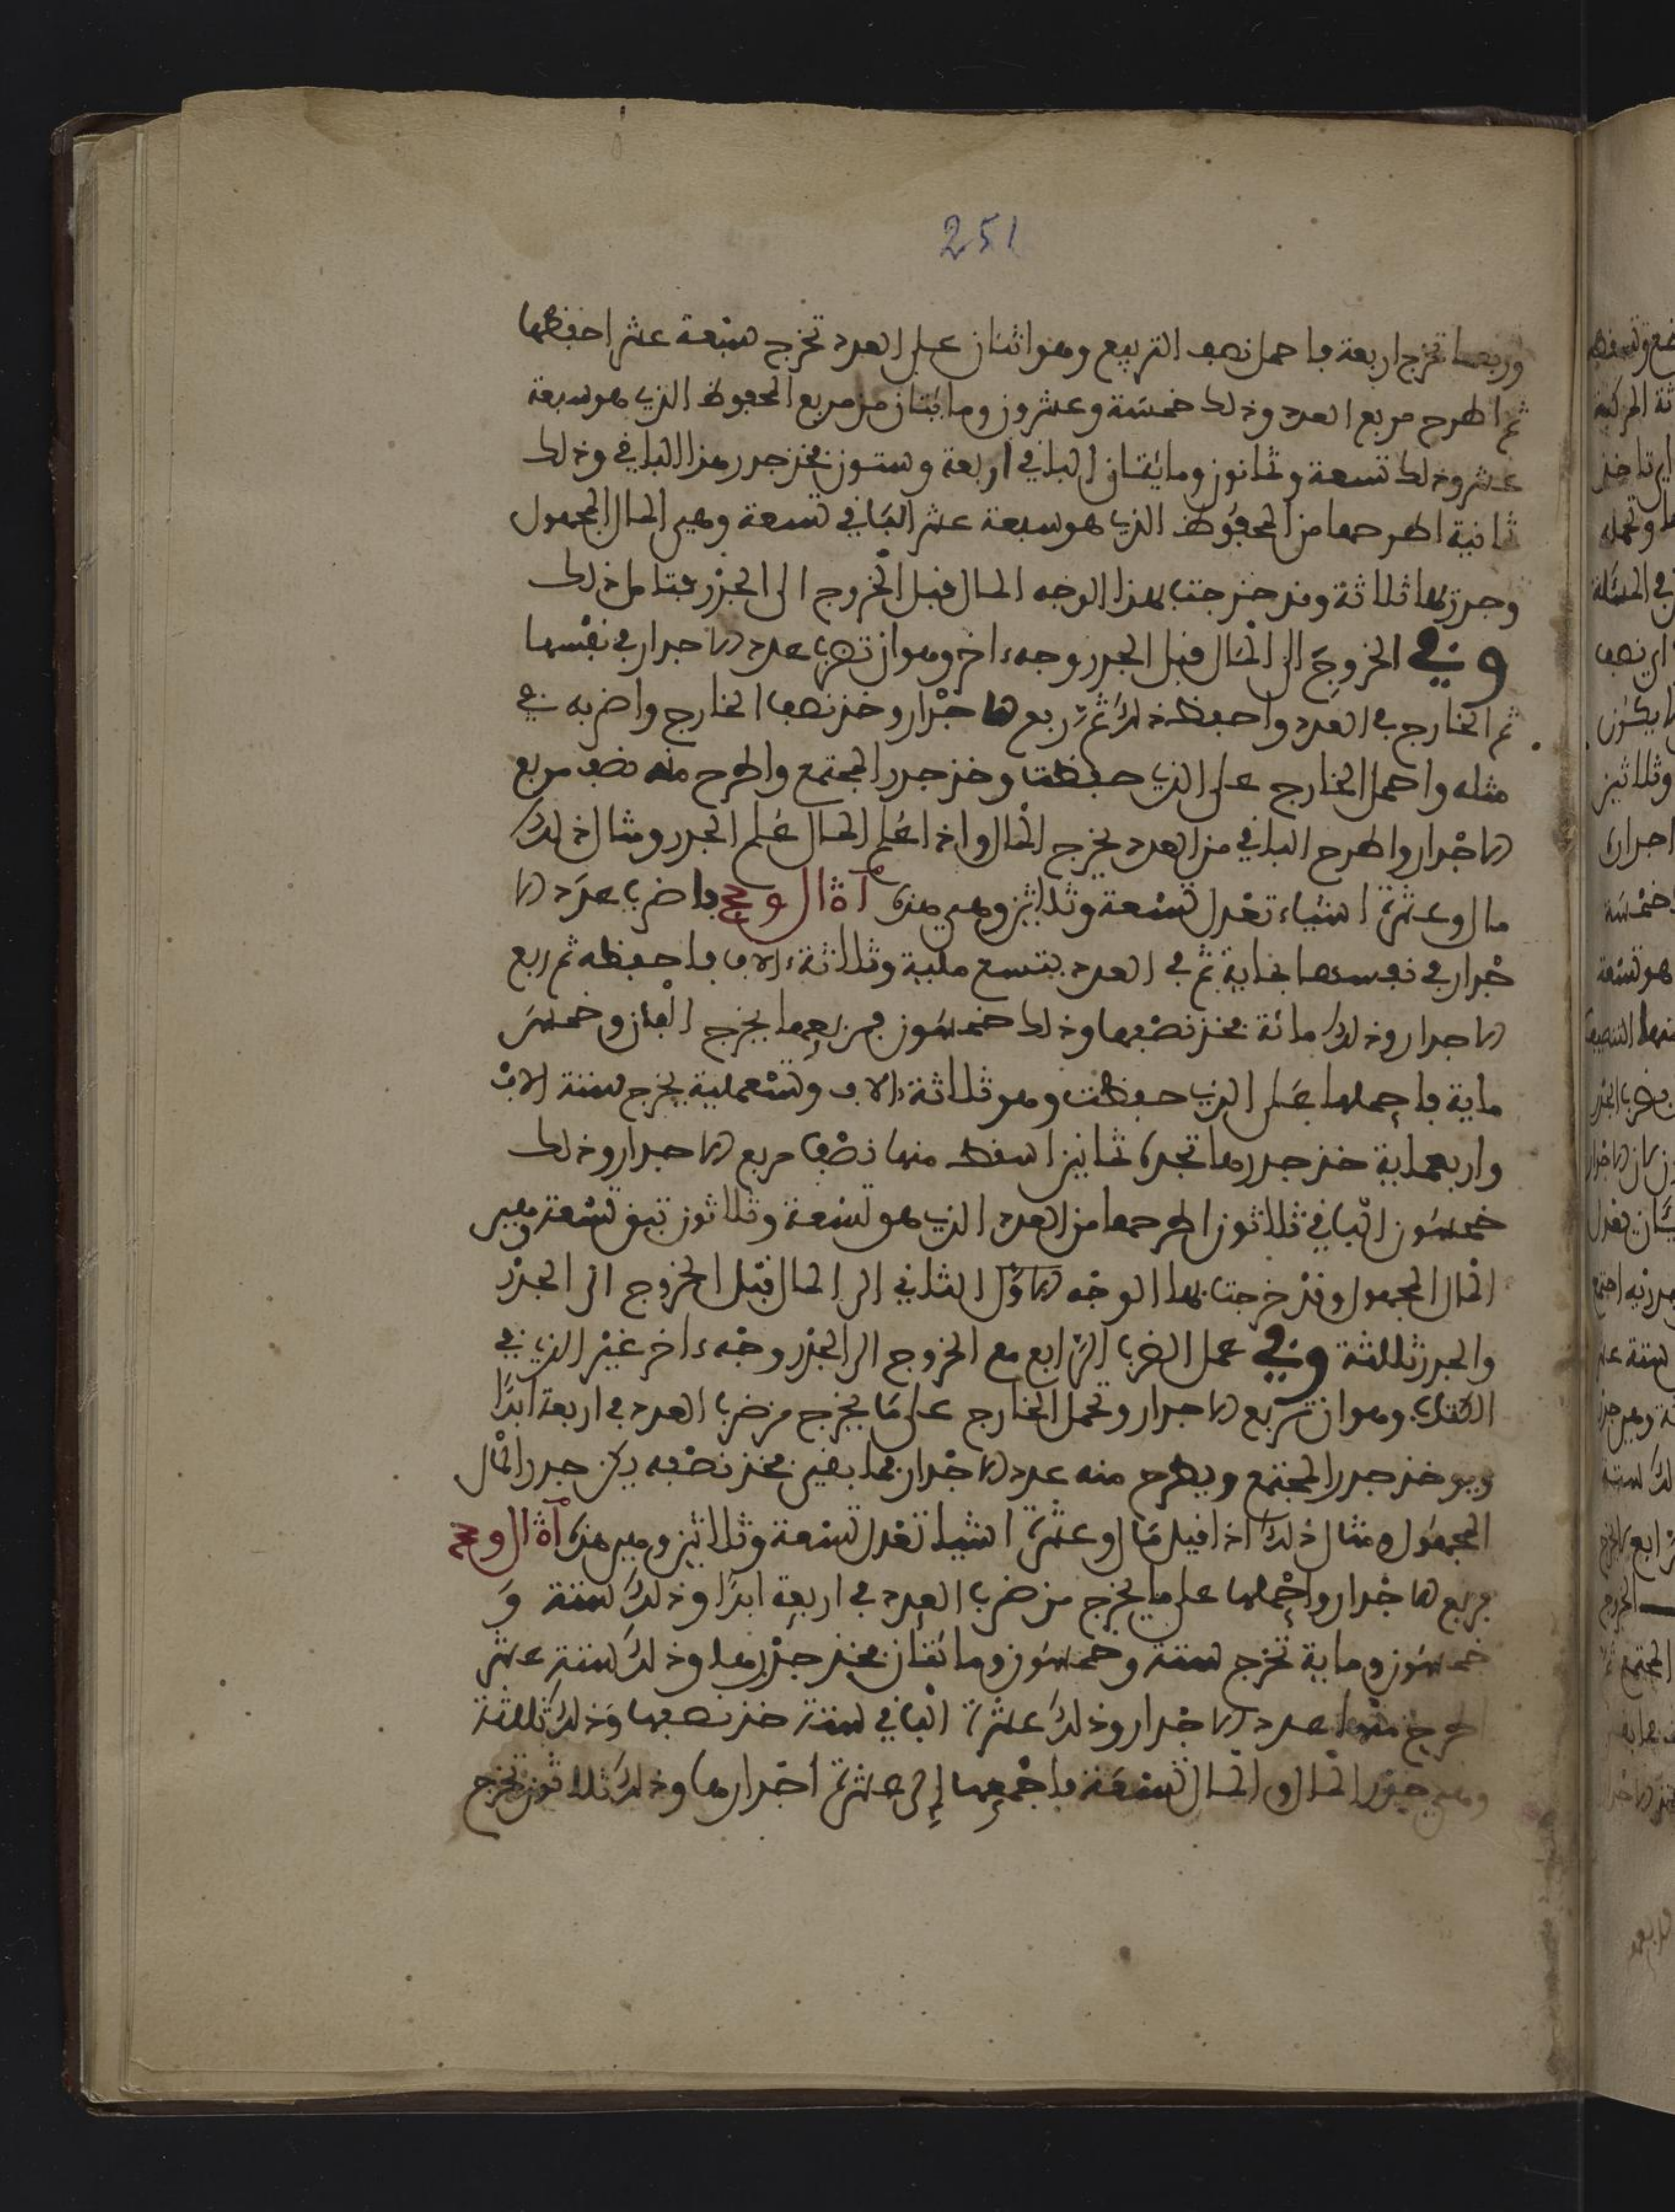 251
وربعها تخرج اربعة فاحمل نصف التربيع وهو اثنان على العدد تخرج سبعة عشر احفظها
ثم اطرح مربع العدد وذلك خمسة وعشرون ومايتان من مربع المحفوظ الذي هو سبعة
عشر وذلك تسعة وثمانون ومايتان الباقي اربعة وستون فخذ جدر هذا الباقي وذلك
ثمانية اطرحها من المحفوظ الذي هو سبعة عشر الباقي تسعة وهي المال المجهول
وجدرها ثلاثة وقد خرجت بهذا الوجه المال قبل الخروج الى الجذر فتامل ذلك
وفي الخروج الى المال قبل الجدر وجه ءاخر وهو ان تضرب عدد الاجدار في نفسها
ثم الخارج في العدد واحفظ ذلك ثم تربع الاجدار وخذ نصف الخارج واضربه في
مثله واحمل الخارج على الذي حفظت وخذ جدر المجتمع واطرح منه نصف مربع
الاجدار واطرح الباقي من العدد يخرج المال واذا علم المال علم الجدر ومثال ذلك
مال وعشرة اشياء تعدل تسعة وثلاثين وهي هذه فاضرب عدد الا
جدار في نفسها بماية ثم في العدد بتسع ماية وثلاثة ءالاف فاحفظه ثم ربع
الاجدار وذلك مائة فخذ نصفها وذلك خمسون فربعها يخرج الفان وخمس
ماية فاحملها على الذي حفظت وهو ثلاثة ءالاف وتسعماية يخرج ستة الاف
واربعماية خذ جدرها تجده ثمانين اسقط منها نصف مربع الاجدار وذلك
خمسون الباقي ثلاثون اطرحها من العدد الذي هو تسعة وثلاثون تبقى تسعة وهي
المال المجهول وقد خرجت بهذا الوجه الاول الثاني الى المال قبل الخروج الى الجذر
والجدر ثلثة وفي عمل الضرب الرابع مع الخروج الى الجذر وجه ءاخر غير الذي في
وهو ان تربع الاجدار وتحمل الخارج على ما يخرج من ضرب العدد في اربعة ابدا
ويوخذ جدر المجتمع ويطرح منه عدد الاجدار فما بقي فخذ نصفه يكن جدر المال
المجهول ومثال ذلك اذا قيل مال وعشرة اشيا تعدل تسعة وثلاثين وهي هذه
فربع الاجدار واحملها على ما يخرج من ضرب العدد في اربعة ابدا وذلك ستة و
خمسون وماية تخرج ستة وخمسون ومائتان فخذ جذرها وذلك ستة عشر
اطرح منها عدد الاجدار وذلك عشرة الباقي ستة خذ نصفها وذلك ثلثة
وهي جذر المال والمال تسعة فاجمعها الى عشرة اجدارها وذلك ثلاثون تخرج